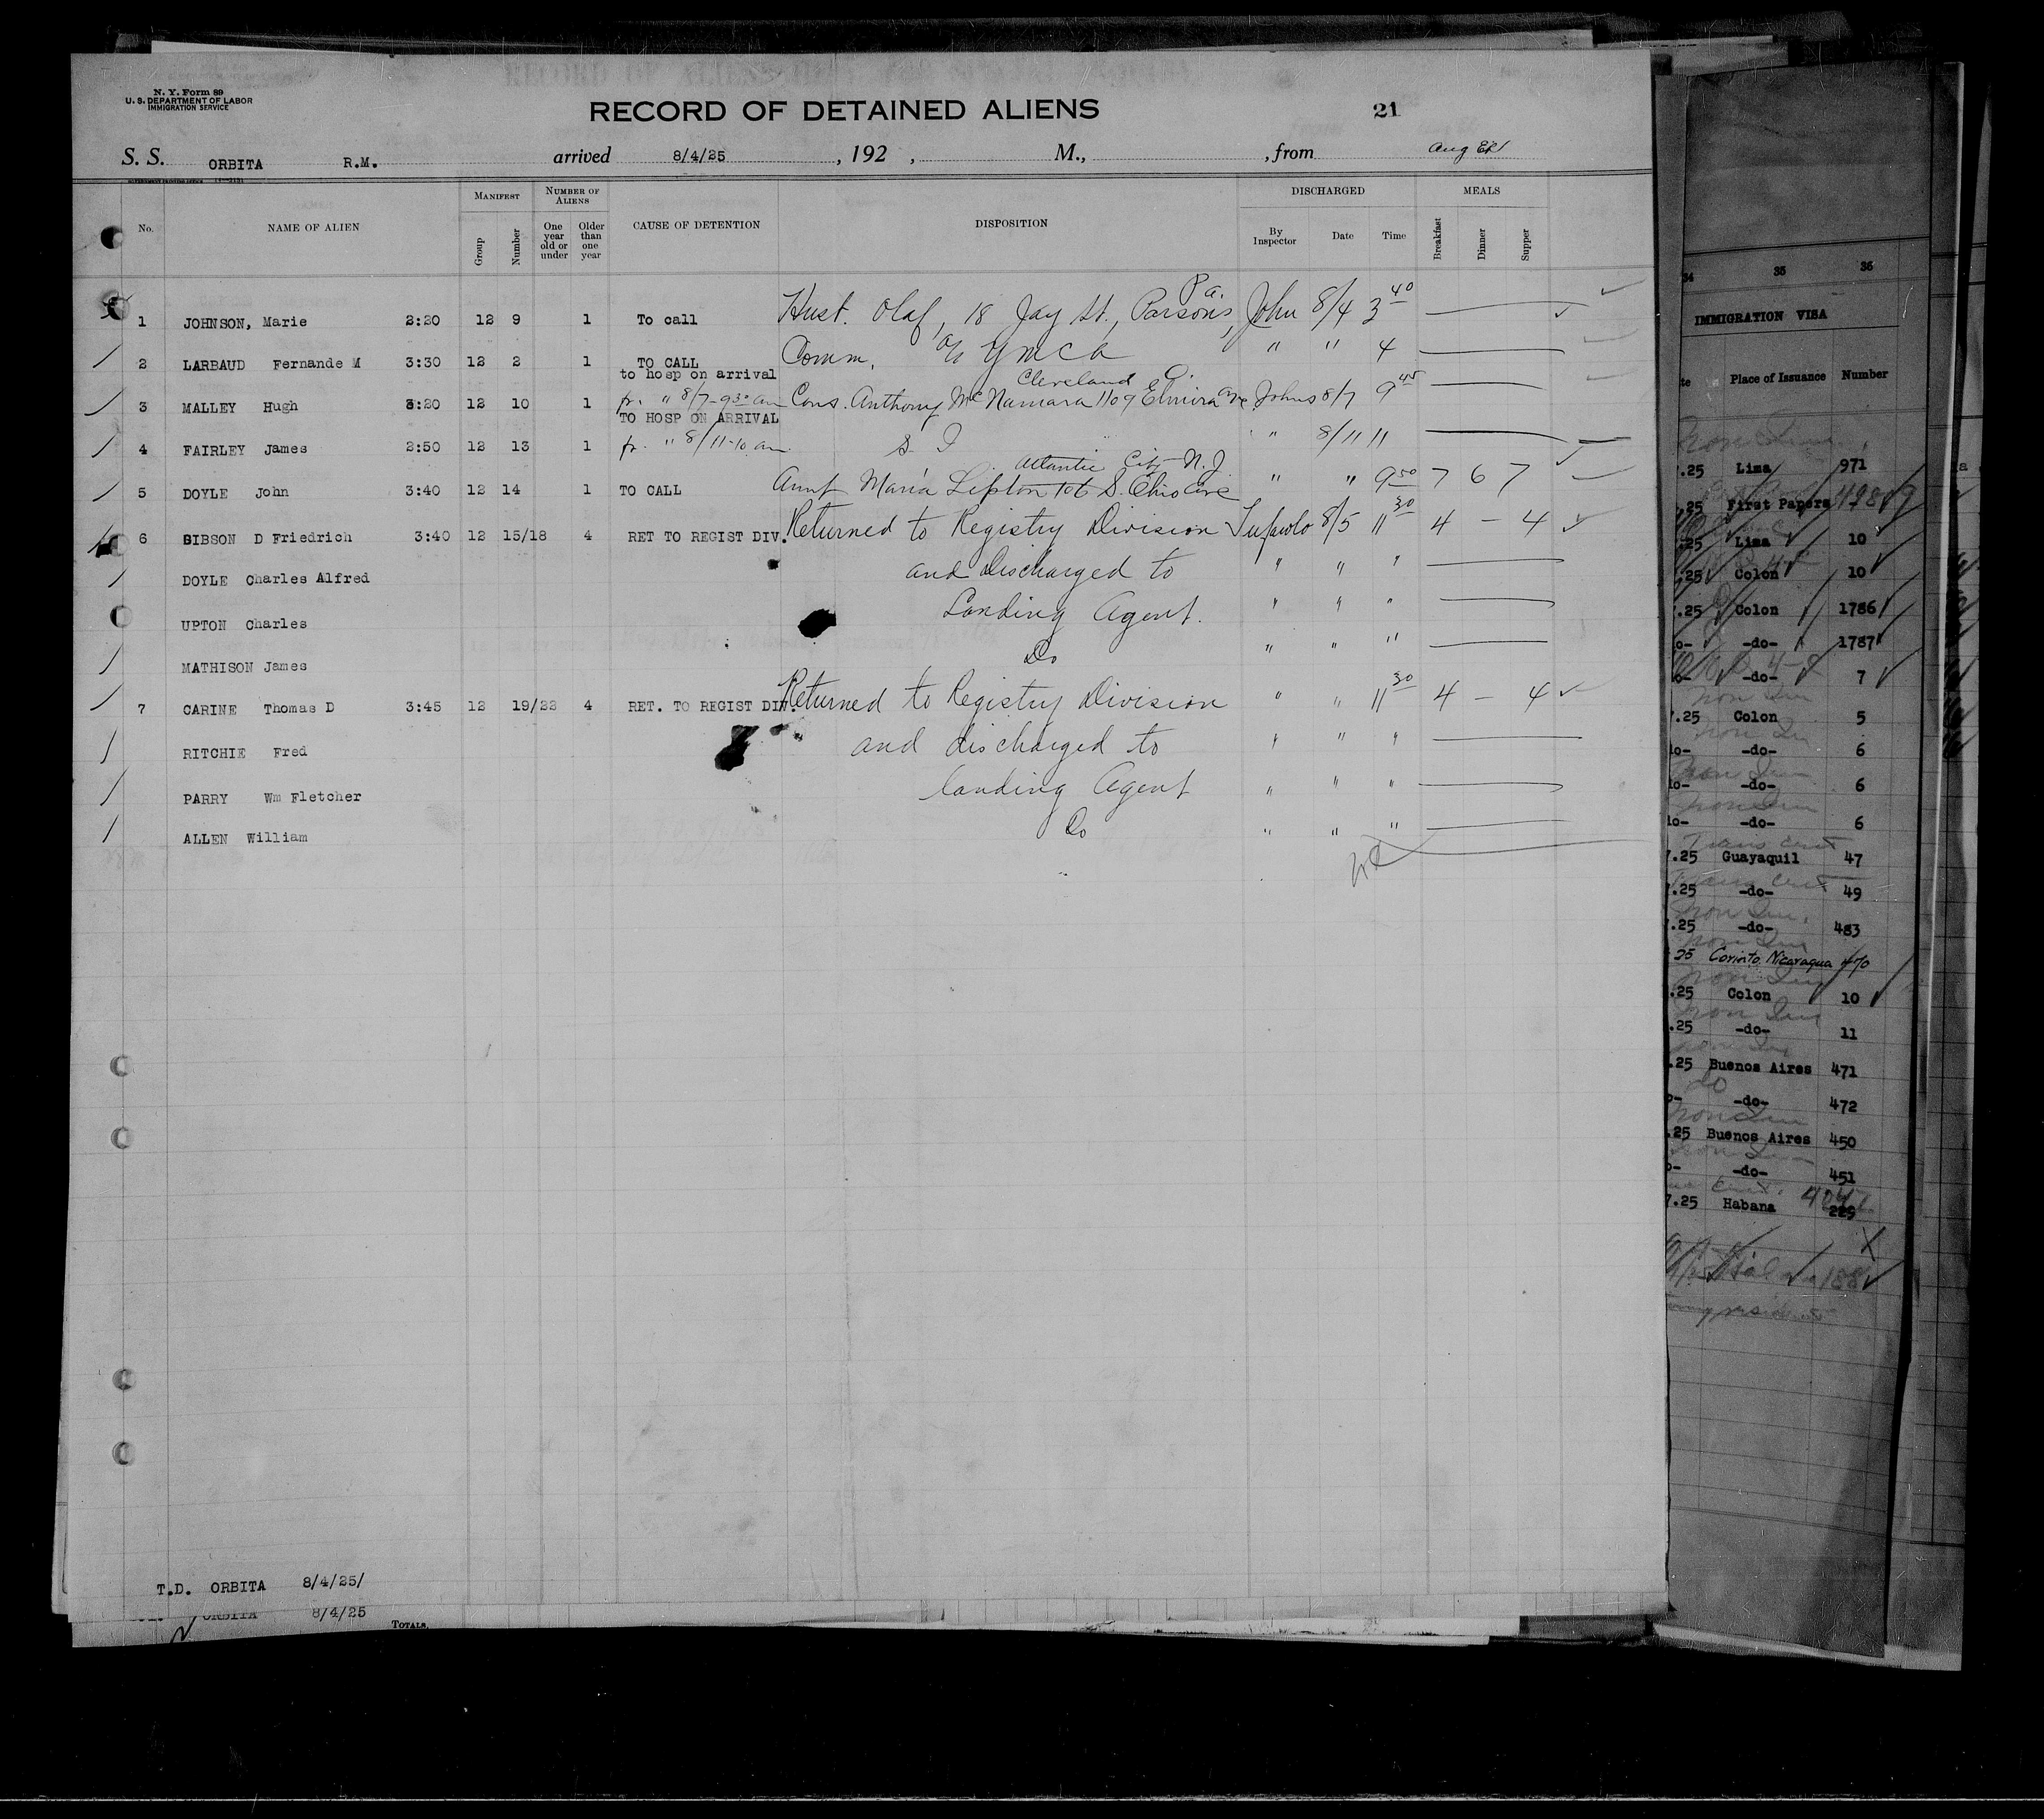 N. Y. Form 89
U. S. DEPARTMENT OF LABOR
IMMIGRATION SERVICE
RECORD OF DETAINED ALIENS 21
S. S. ORBITA R.M. arrived 8/4/25, 192 , M., , from
No. NAME OF ALIEN MANIFEST Group Number NUMBER OF ALIENS One year old or under Older than one year CAUSE OF DETENTION DISPOSITION DISCHARGED By Inspector Date Time MEALS Breakfast Dinner Supper
Pa.
1 JOHNSON, Marie 2:20 12 9 1 To call Husb. Olaf, 18 Jay St., Parsons, John 8/4 3 40
2 LARBAUD Fernande M 3:30 12 2 1 TO CALL Comm. YMCA " " 4
to hosp on arrival Cleveland O.
3 MALLEY Hugh 3:20 12 10 1 fr. " 8/7-9 30 am Cons. Anthony McNamara 1109 Elmira Ave Johns 8/7 9 45
TO HOSP ON ARRIVAL
4 FAIRLEY James 2:50 12 13 1 fr. " 8/11-10 am S. I " 8/11 11
Atlantic City N.J.
5 DOYLE John 3:40 12 14 1 TO CALL Aunt Maria Lipton 106 S. Ohio Ave " " 9 50 7 6 7
6 GIBSON D Friedrich 3:40 12 15/18 4 RET TO REGIST DIV. Returned to Registry Division 8/5 11 30 4 - 4
DOYLE Charles Alfred and Discharged to " " "
UPTON Charles Landing Agent. " " "
MATHISON James Do " " "
7 CARINE Thomas D 3:45 12 19/22 4 RET. TO REGIST DIV. Returned to Registry Division " " 11 30 4 - 4
RITCHIE Fred and discharged to " " "
PARRY Wm Fletcher landing Agent " " "
ALLEN William Do " " "
T.D. ORBITA 8/4/25/
ORBITA 8/4/25
TOTALS,
34 35 36
IMMIGRATION VISA
Place of Issuance Number
.25 Lima 971
.25 First Papers
.25 Lima 10
.25 Colon 10
.25 Colon 1786
-do- 1787
-do- 7
.25 Colon 5
-do- 6
-do- 6
-do- 6
.25 Guayaquil 47
.25 -do- 49
.25 -do- 483
25 Corinto Nicaragua 470
.25 Colon 10
.25 -do- 11
.25 Buenos Aires 471
-do- 472
.25 Buenos Aires 450
-do- 451
7.25 Habana 229